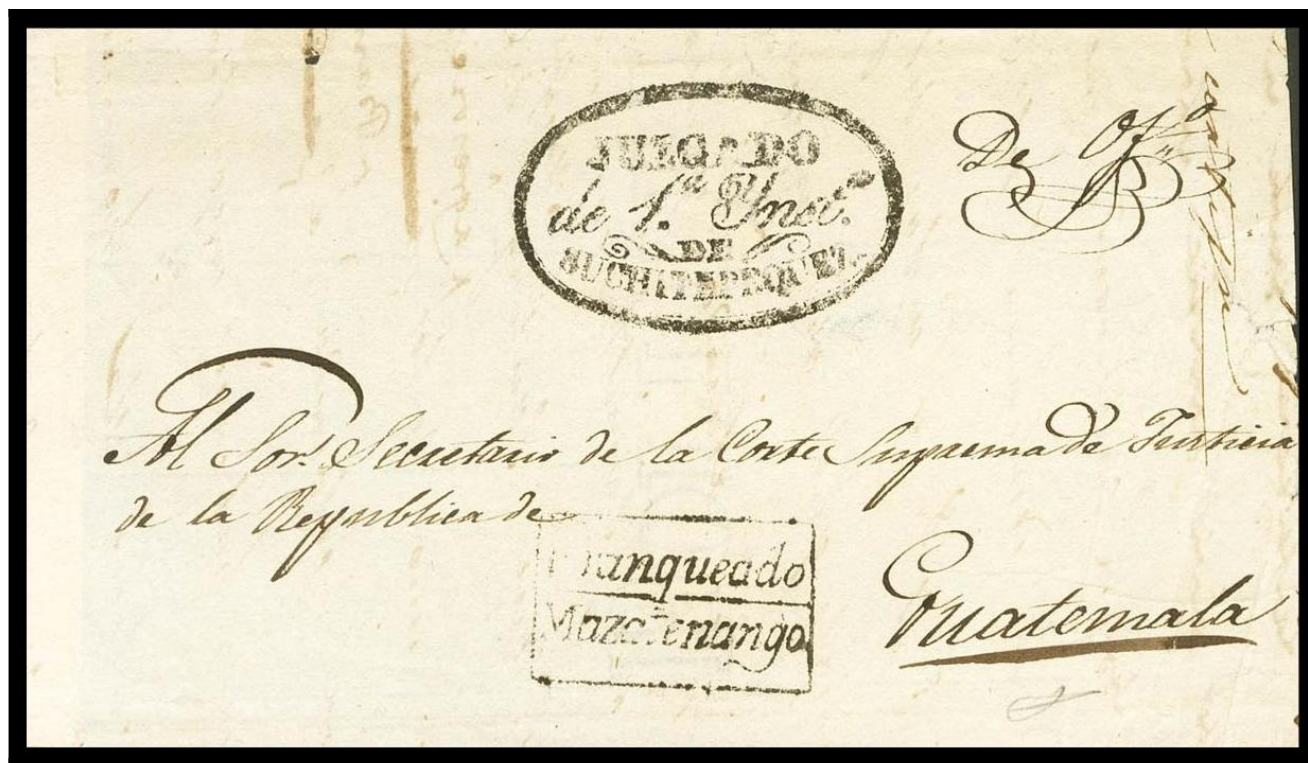 JULGADO
de 1.ª Ynst.ª
DE
SUCHITEPEQUEZ
De Ofº
Al Sor. Secretario de la Corte Suprema de Justicia
de la Republica de
Franqueado
Mazatenango
Guatemala